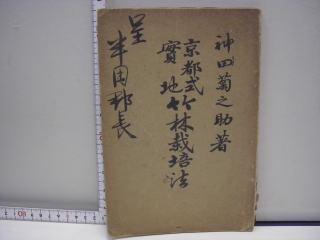 神田菊之助著
京都式竹林栽培法
實地
呈
半田郡長